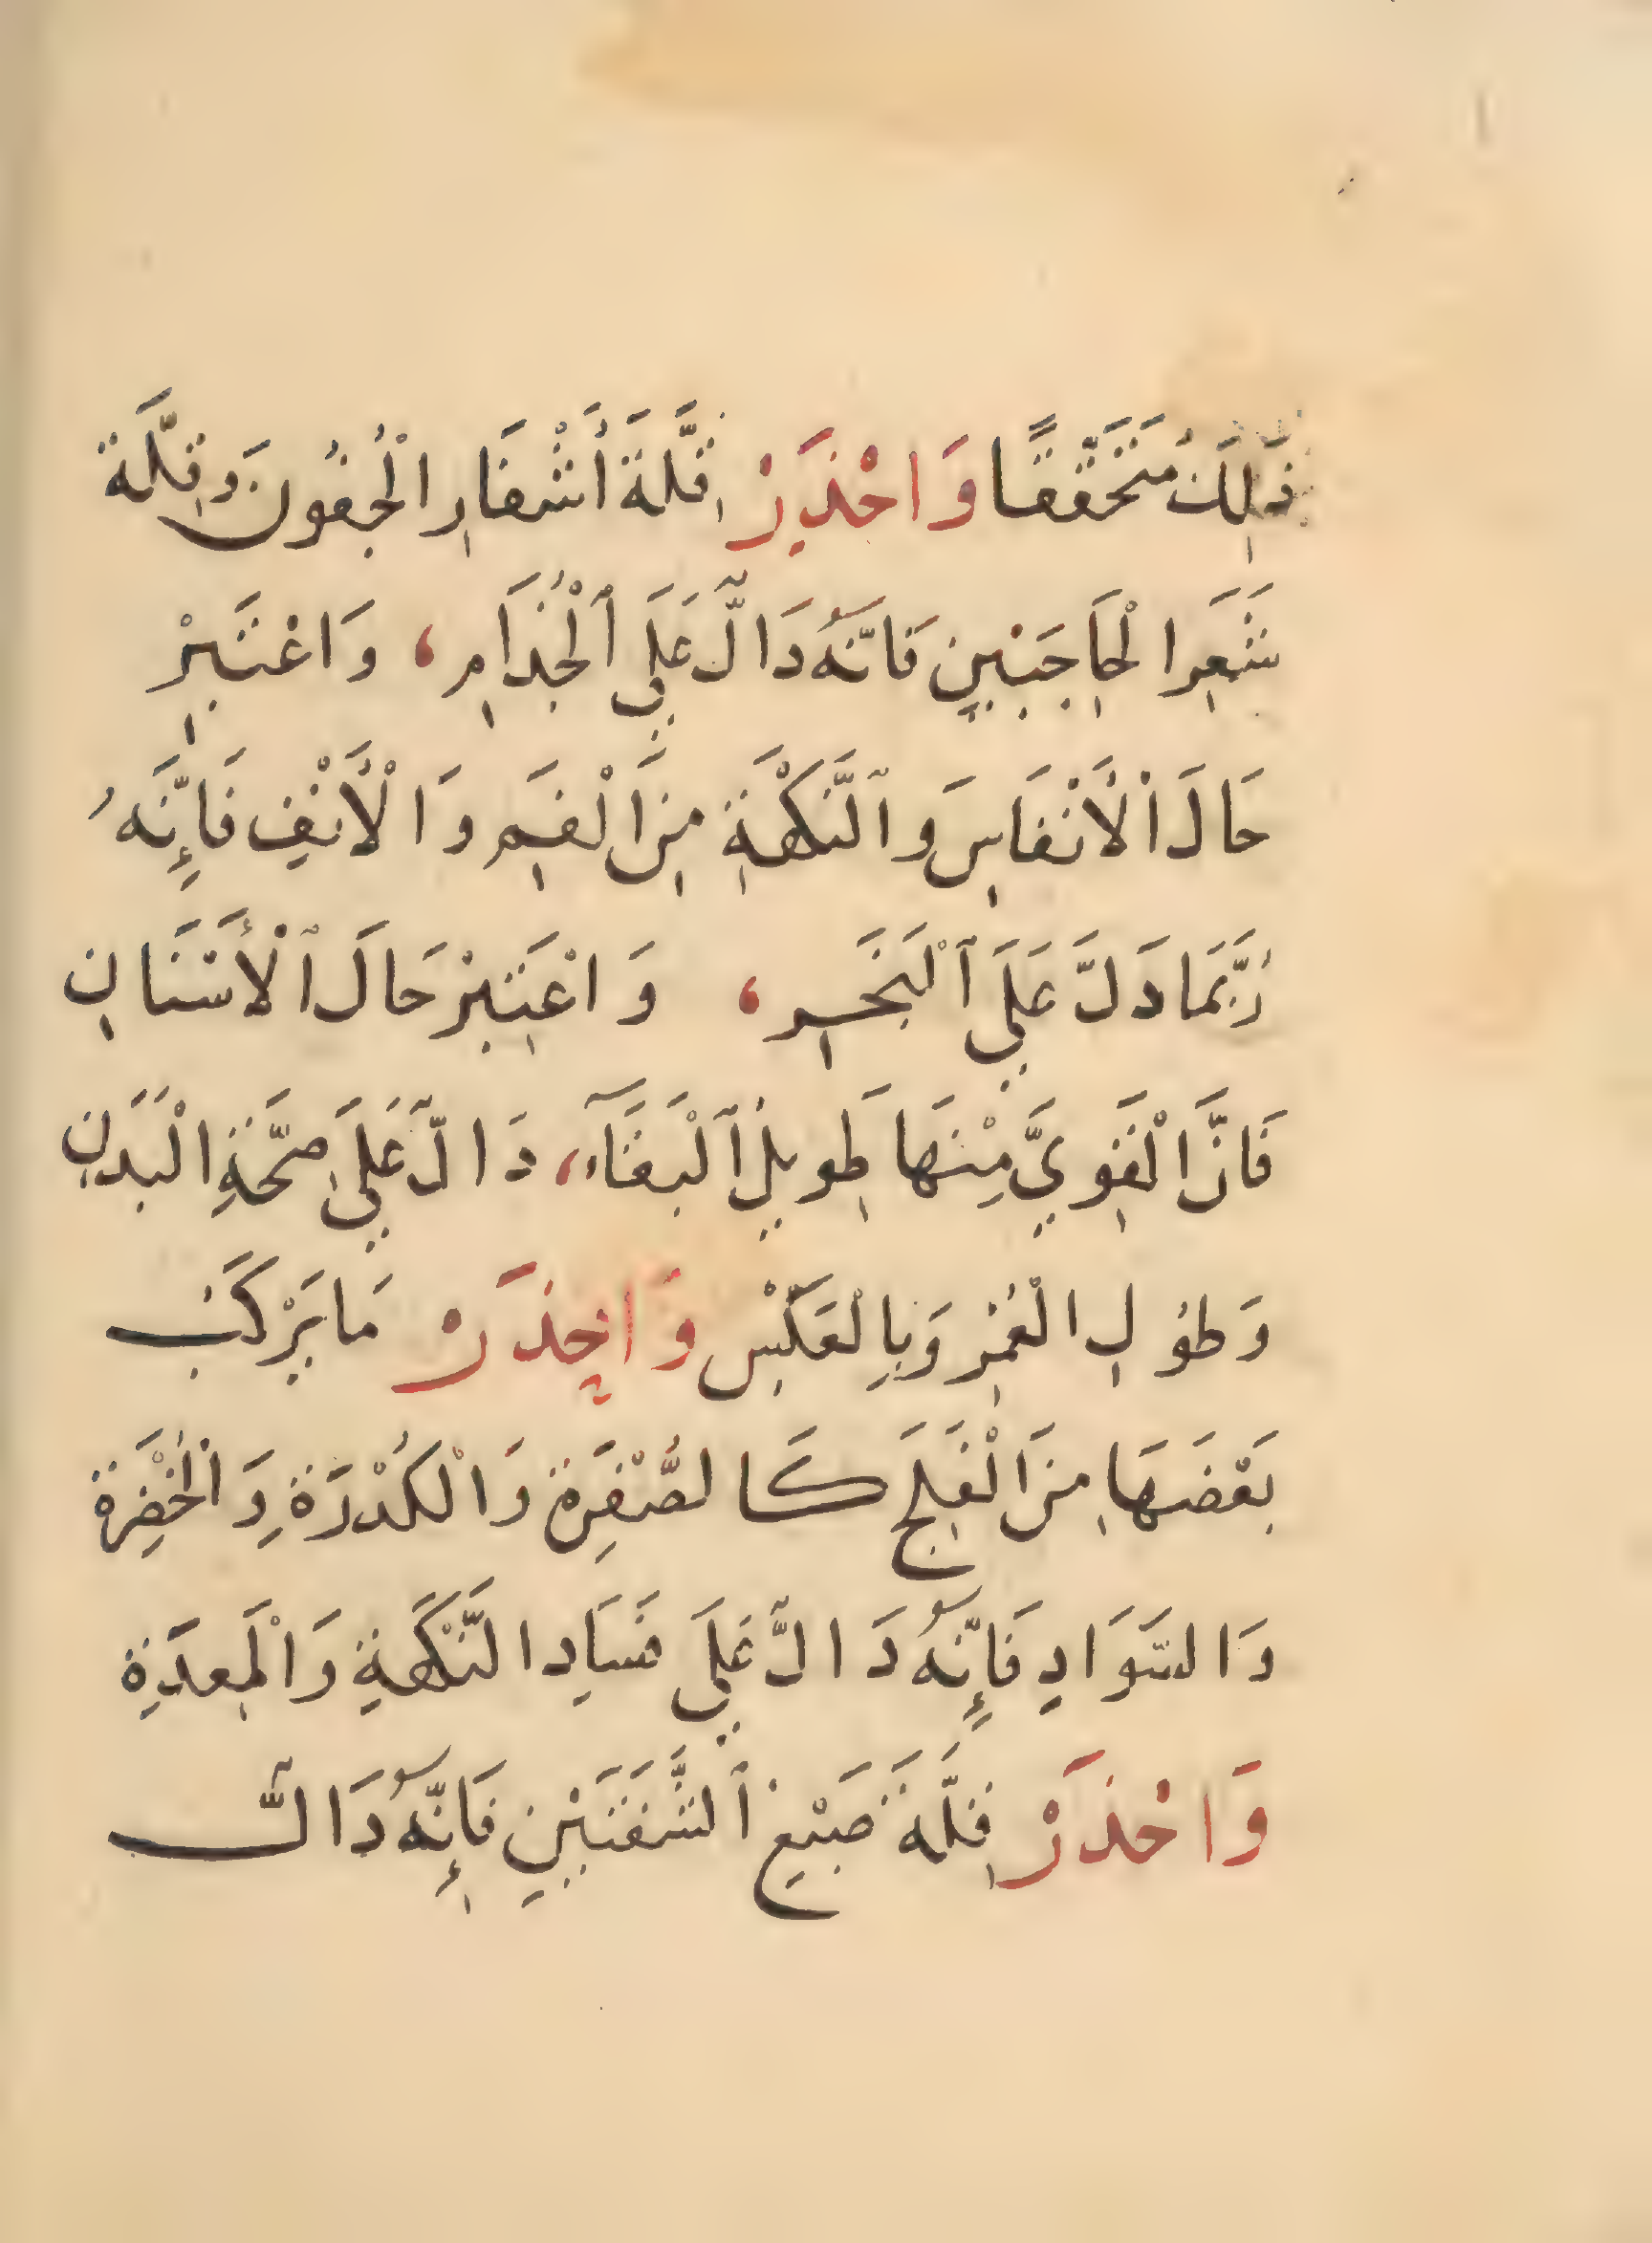 ذَلِكَ مُتَحَقَّقًا وَاحْذَرْ قِلَّةَ أَشْفَارِ الْجُفُونِ وَقِلَّةَ
شَعَرِ الْحَاجِبَيْنِ فَانَّهُ دَالٌّ عَلَى الْجُذَامِ، وَاعْتَبِرْ
حَالَ الْأَنْفَاسِ وَالنَّكْهَةِ مِنَ الْفَمِ وَالْأَنْفِ فَإِنَّهُ
رُبَّمَا دَلَّ عَلَى الْبَخَرِ، وَاعْتَبِرْ حَالَ الْأَسْنَانِ
فَانَّ الْقَوِيَّ مِنْهَا طَوِيلُ الْبَقَآءِ، دَالٌّ عَلَى صِحَّةِ الْبَدَنِ
وَطُولِ الْعُمْرِ وَبِالْعَكْسِ وَاحْذَرْ مَا يَرْكَبُ
بَعْضَهَا مِنَ الْفَلَجِ كَالصُّفْرَةِ وَالْكُدْرَةِ وَالْخُضْرَةِ
وَالسَّوَادِ فَإِنَّهُ دَالٌّ عَلَى فَسَادِ النَّكْهَةِ وَالْمَعِدَةِ
وَاحْذَرْ قِلَّةَ صَبْغِ الشَّفَتَيْنِ فَإِنَّهُ دَالٌّ